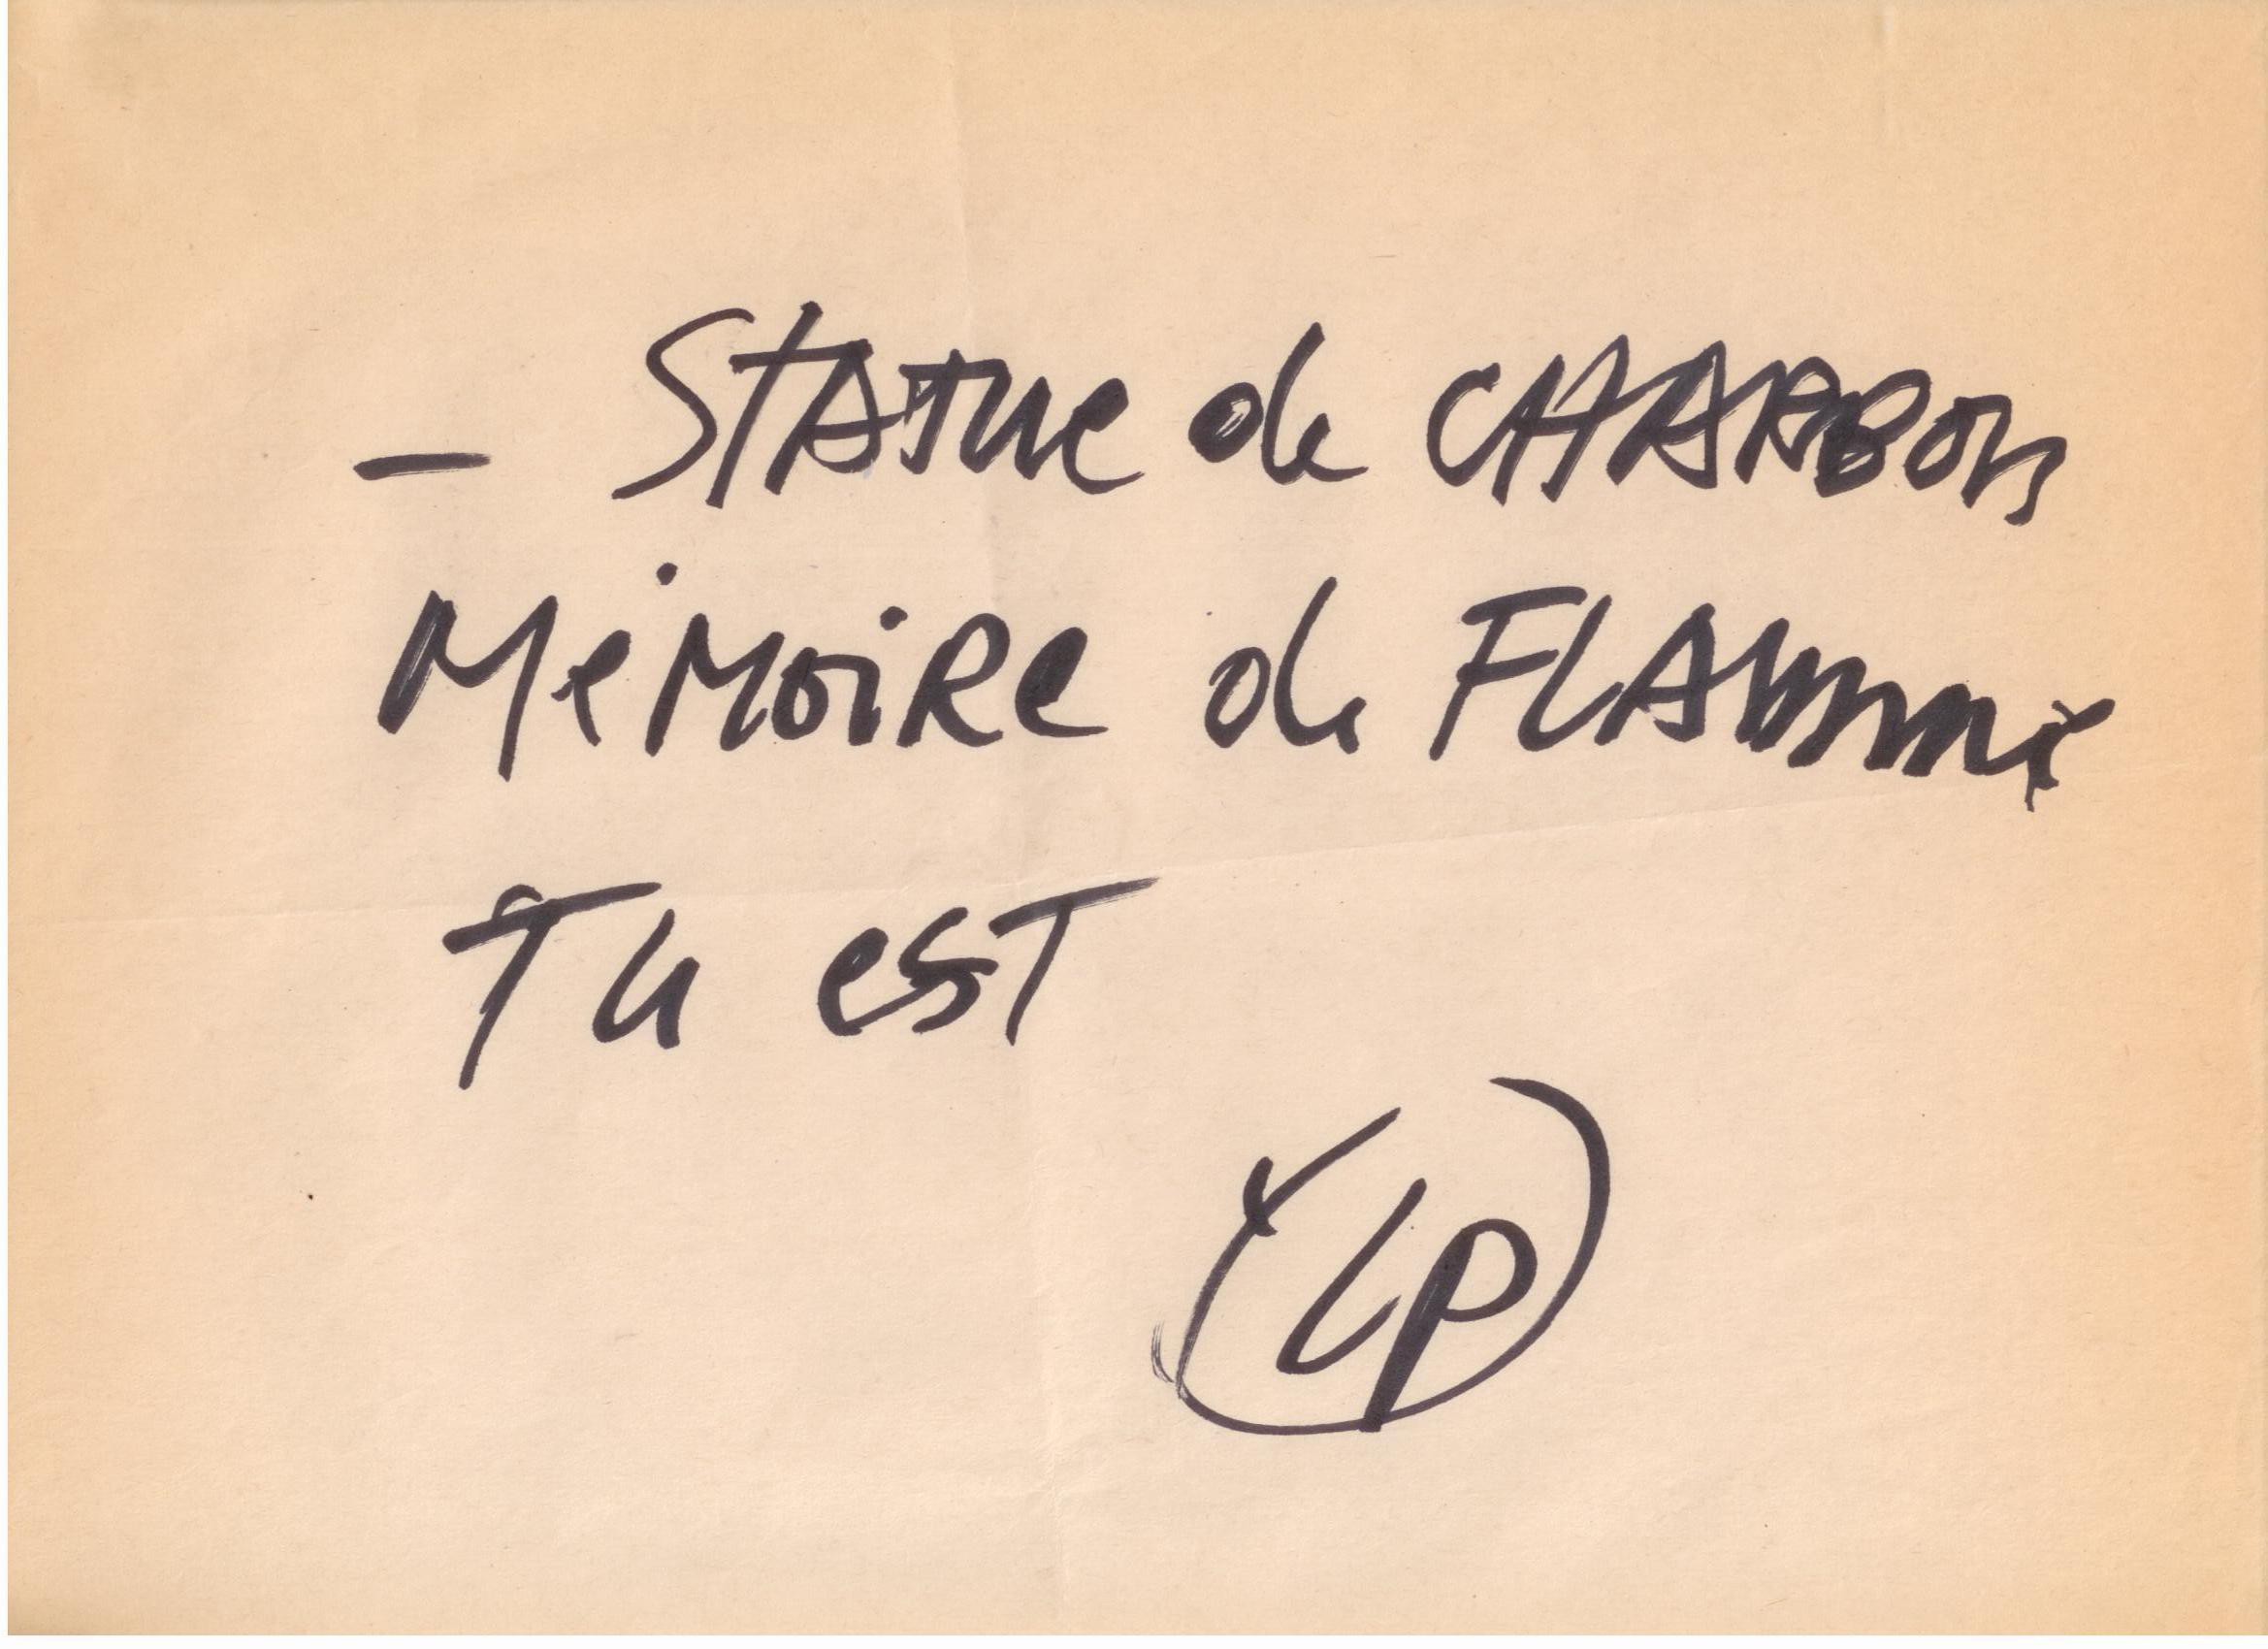 – STATUE de CHARBON
MéMoiRe de FLAMME
Tu esT
LP